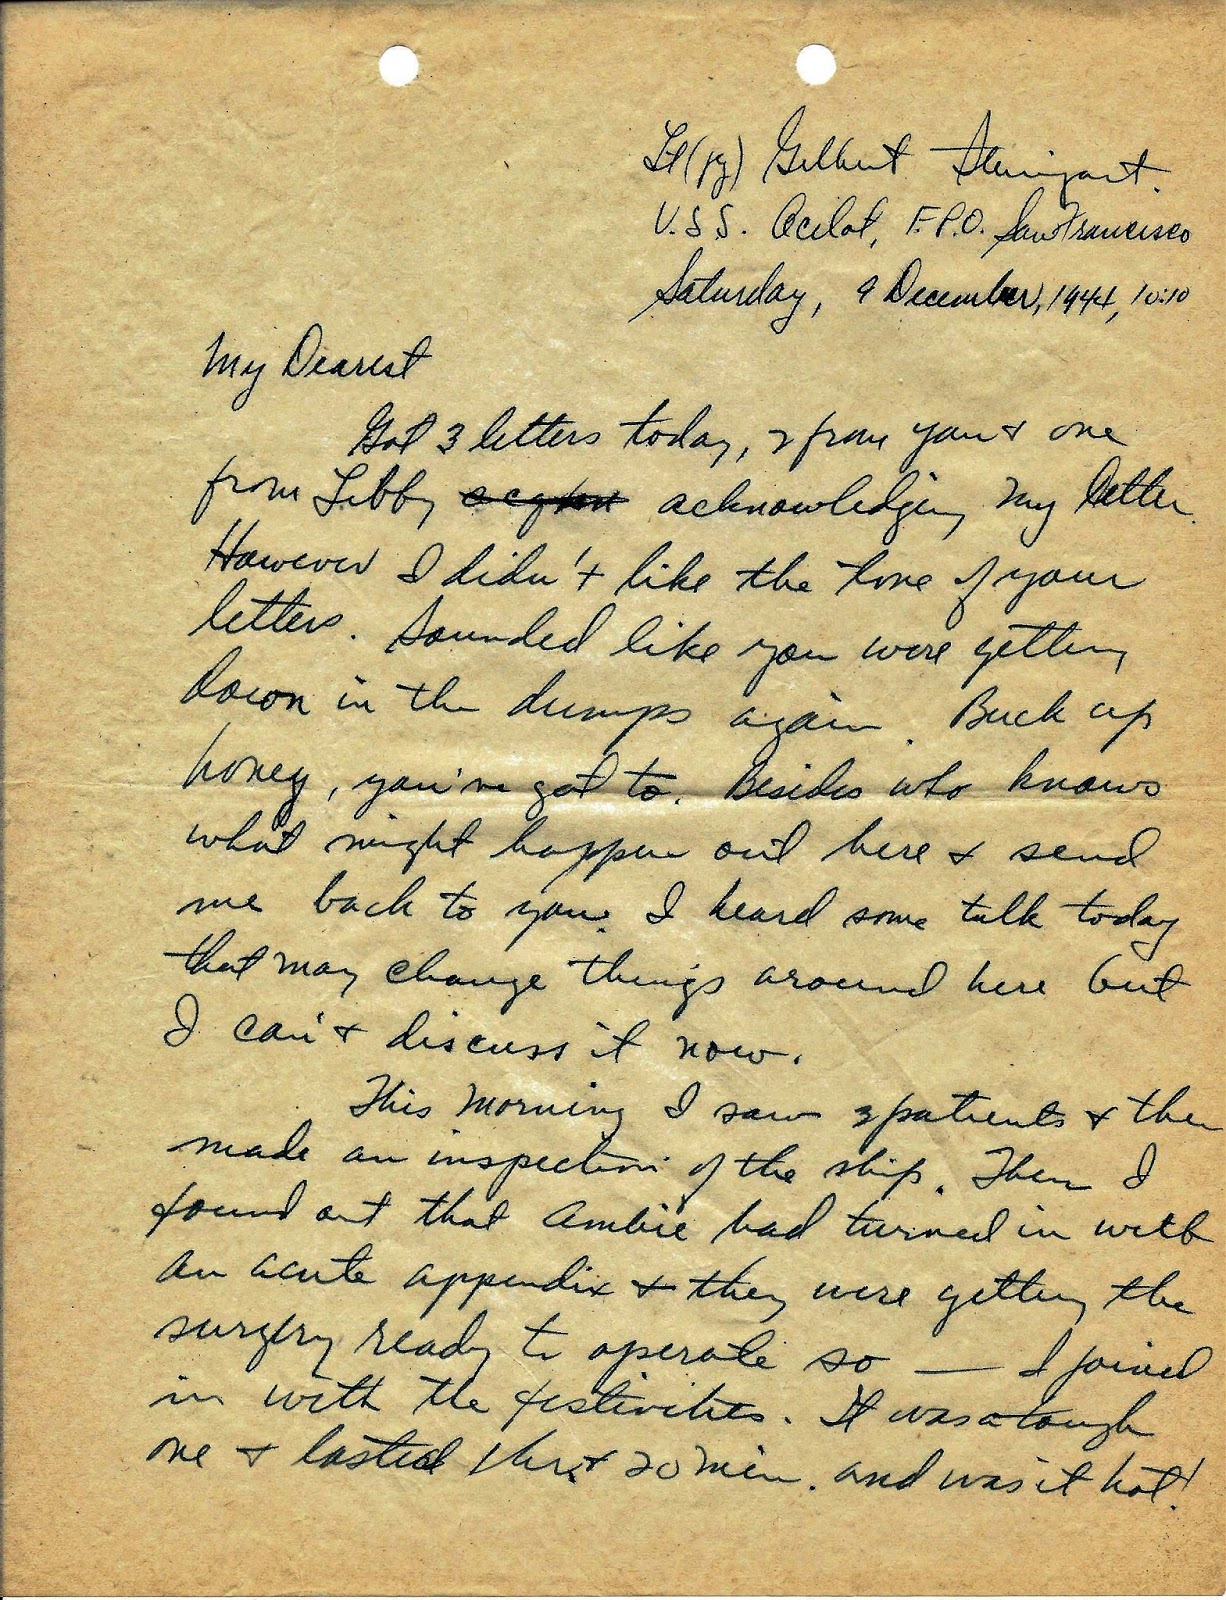 Lt(jg) Gilbert Steingart.
U.S.S. Ocelot, F.P.O. San Francisco
Saturday, 9 December, 1944, 10:10
My Dearest
Got 3 letters today, 2 from you & one
from Libby acknowledging my letter.
However I didn't like the tone of your
letters. Sounded like you were getting
down in the dumps again. Buck up
honey, you've got to. Besides who knows
what might happen out here & send
me back to you. I heard some talk today
that may change things around here but
I can't discuss it now.
This morning I saw patients & then
made an inspection of the ship. Then I
found out that Ambie had turned in with
an acute appendix & they were getting the
surgery ready to operate so — I joined
in with the festivities. It was a tough
one & lasted 1 hr & 20 min. and was it hot!